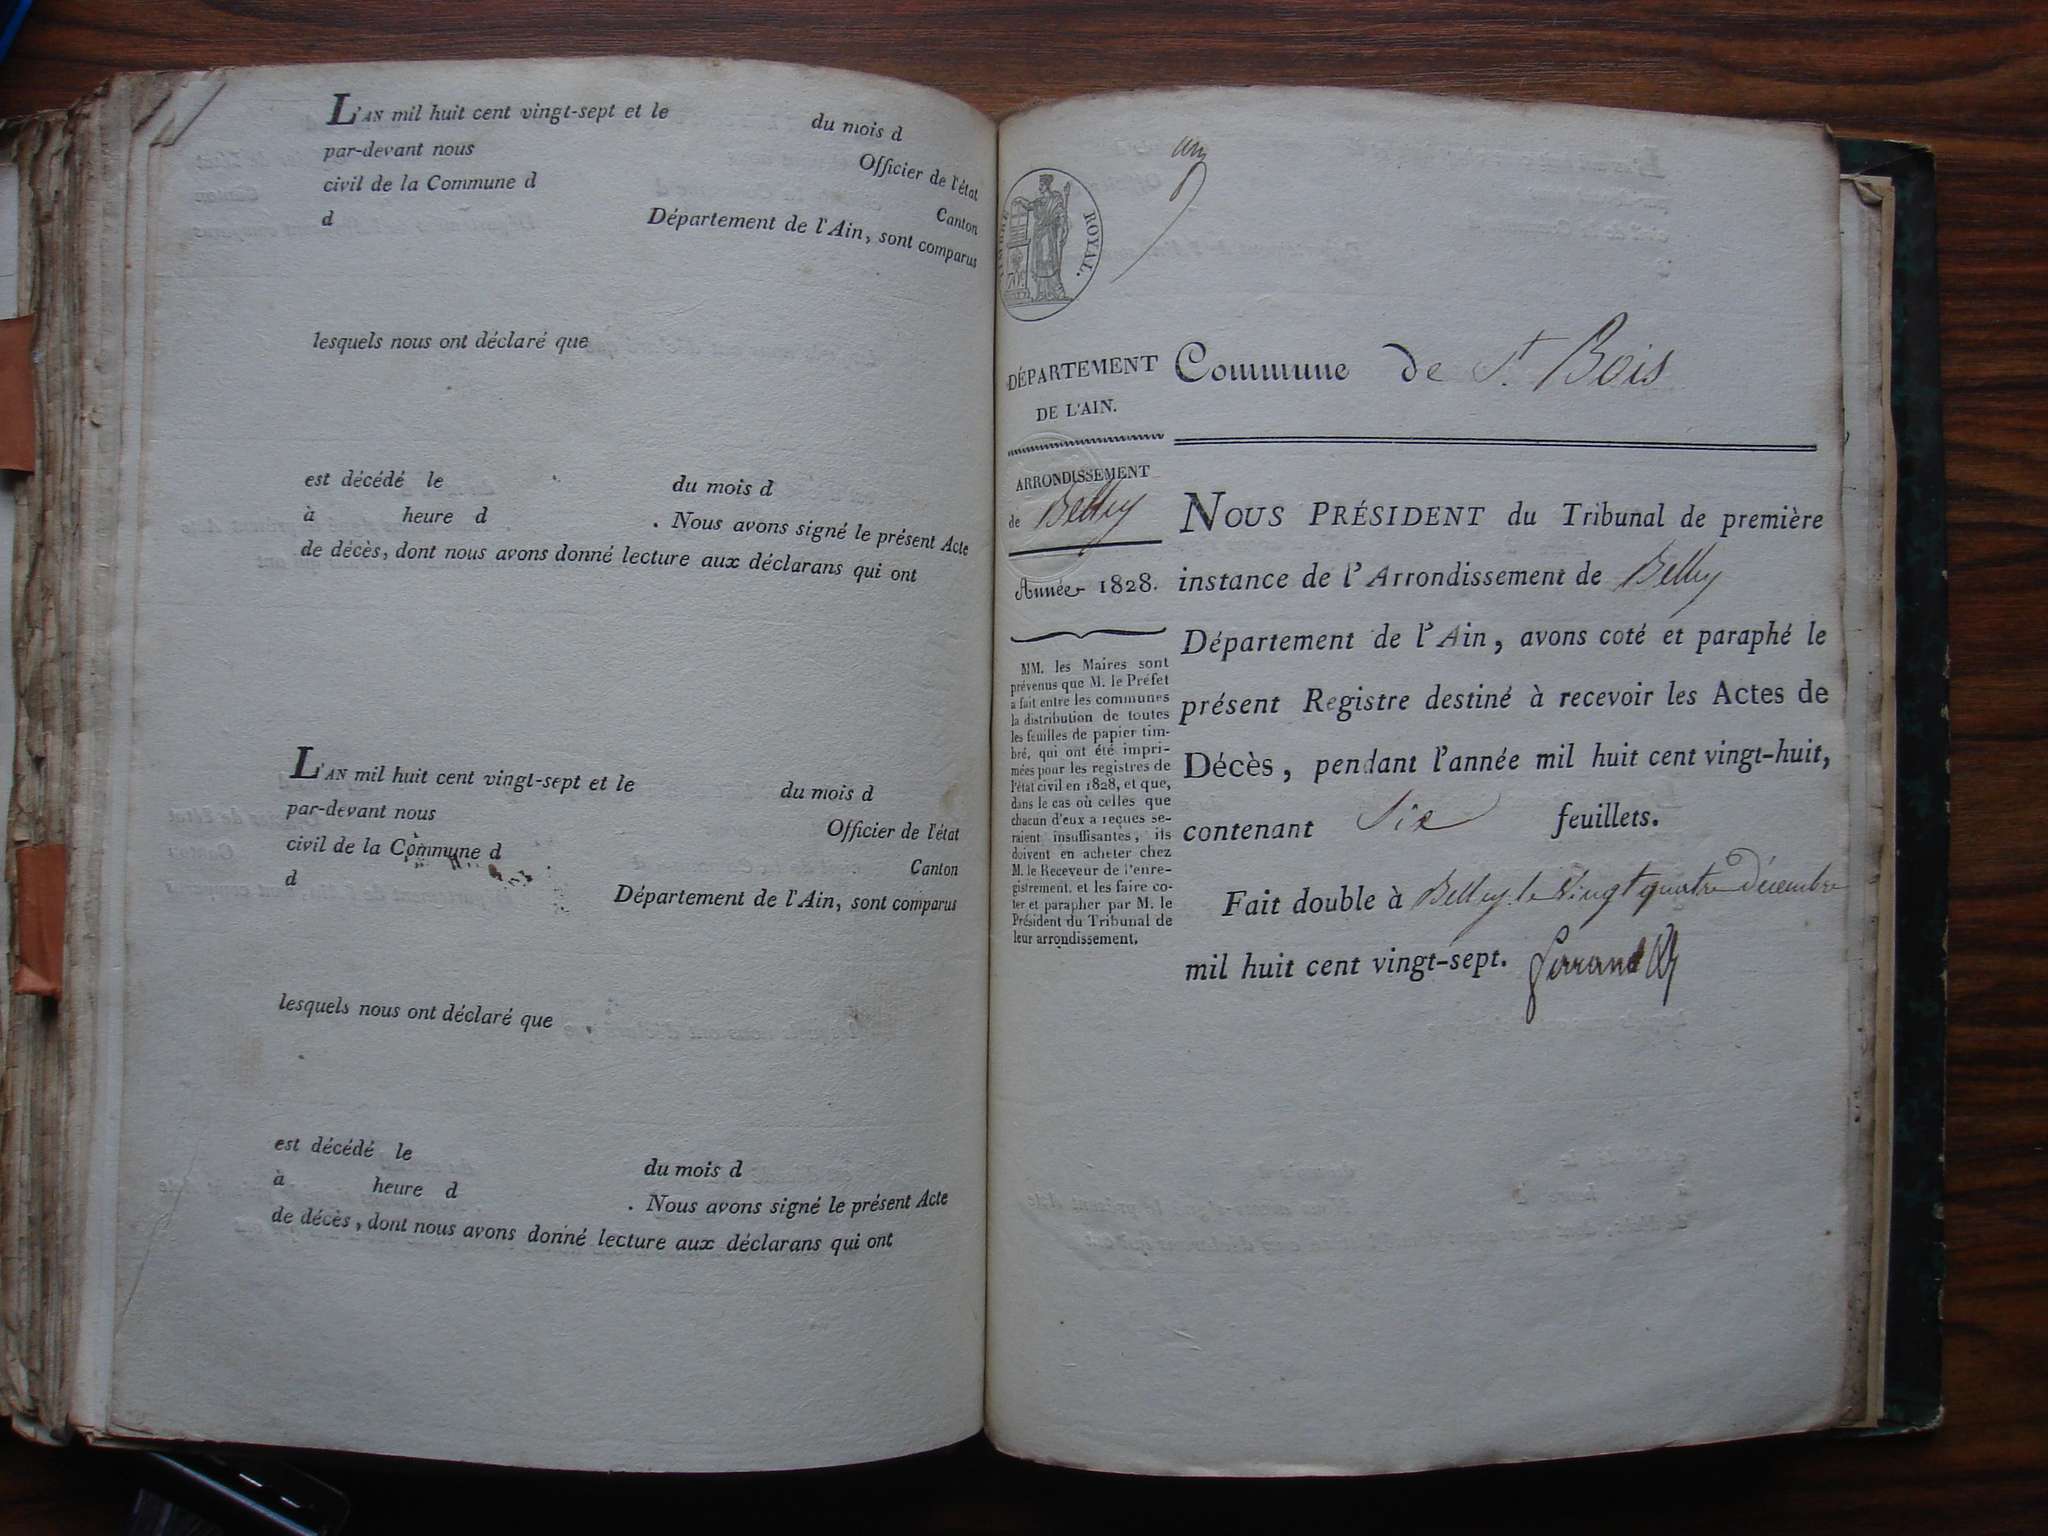 L'AN mil huit cent vingt-sept et le du mois d
par-devant nous Officier de l'état
civil de la Commune d Canton
d Département de l'Ain, sont comparus
lesquels nous ont déclaré que
est décédé le du mois d
à heure d . Nous avons signé le présent Acte
de décès, dont nous avons donné lecture aux déclarans qui ont
L'AN mil huit cent vingt-sept et le du mois d
par-devant nous Officier de l'état
civil de la Commune d Canton
d Département de l'Ain, sont comparus
lesquels nous ont déclaré que
est décédé le du mois d
à heure d . Nous avons signé le présent Acte
de décès, dont nous avons donné lecture aux déclarans qui ont
un
TIMBRE ROYAL.
DÉPARTEMENT
DE L'AIN.
ARRONDISSEMENT
de Belley
Année 1828.
MM. les Maires sont
prévenus que M. le Préfet
a fait entre les communes
la distribution de toutes
les feuilles de papier tim-
bré, qui ont été impri-
mées pour les registres de
l'état civil en 1828, et que,
dans le cas où celles que
chacun d'eux a reçues se-
raient insuffisantes, ils
doivent en acheter chez
M. le Receveur de l'enre-
gistrement, et les faire co-
ter et parapher par M. le
Président du Tribunal de
leur arrondissement.
Commune de St. Bois
NOUS PRÉSIDENT du Tribunal de première
instance de l'Arrondissement de Belley
Département de l'Ain, avons coté et paraphé le
présent Registre destiné à recevoir les Actes de
Décès, pendant l'année mil huit cent vingt-huit,
contenant Six feuillets.
Fait double à Belley le Vingt quatre Décembre
mil huit cent vingt-sept.